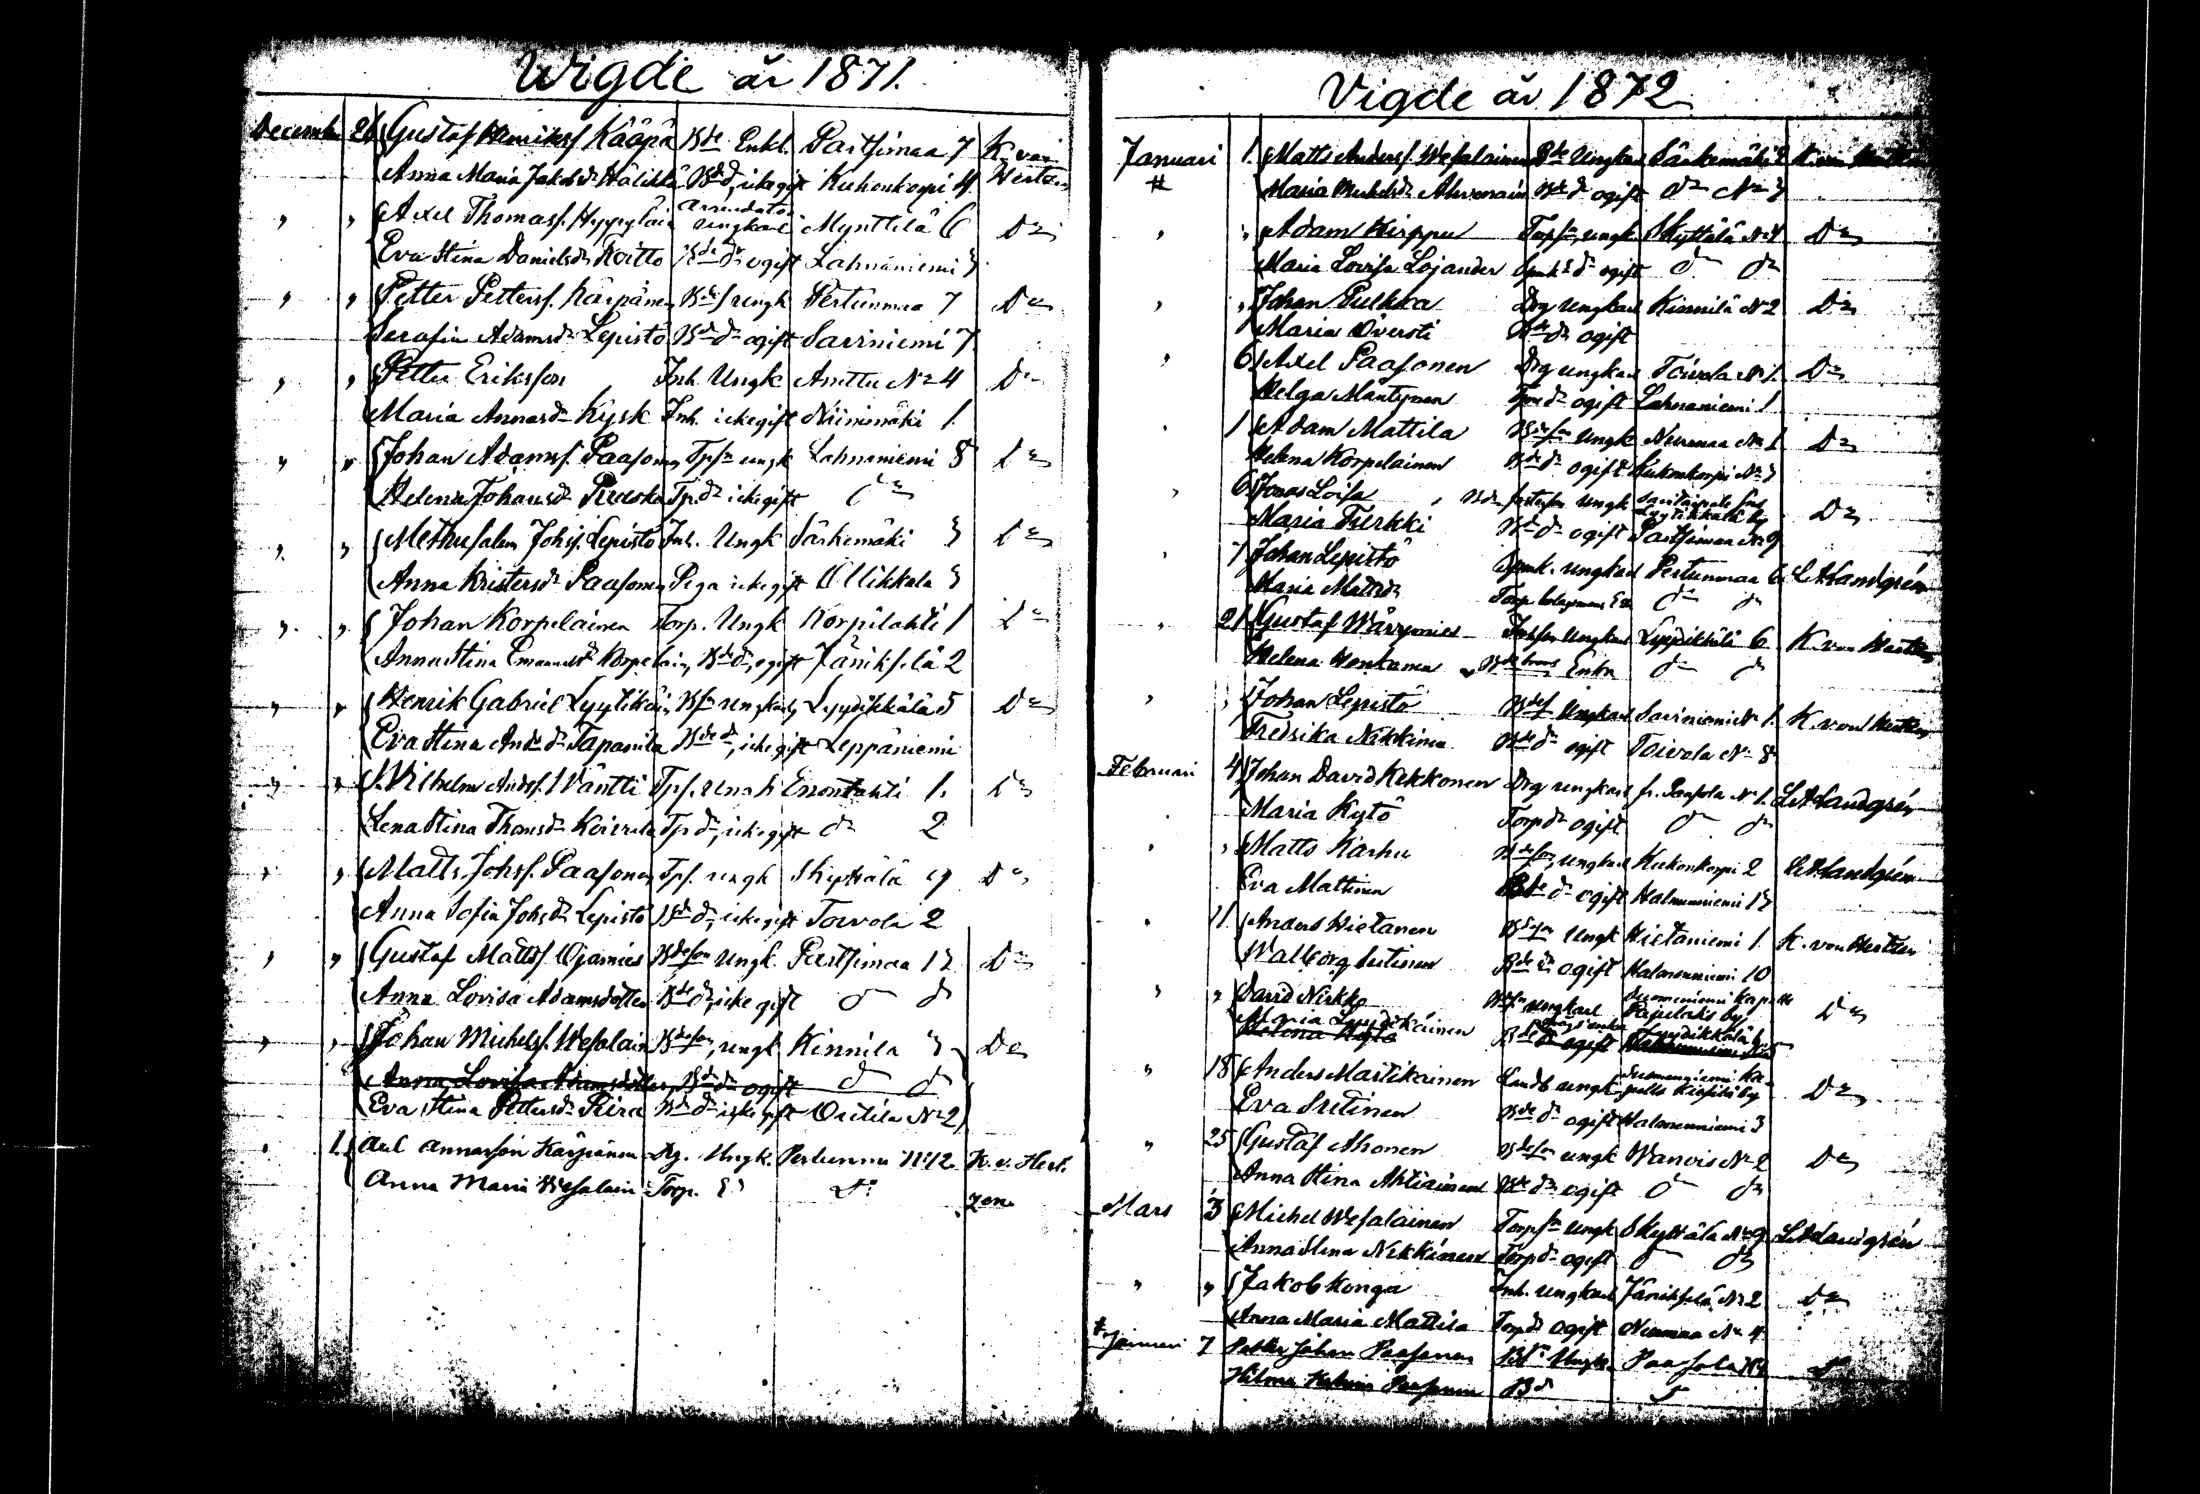 Wigde år 1871.
December 26 Gustaf Henriksf Kääpä Bde Enkl. Partsimaa 7 K. von
Anna Maria Jakobsdr Hälikkä Bde dr, icke gift Kuhonkorpi 4. Hertzen
" " Axel Thomasf. Hyyryläin arrendator ungkarl Mynttilä 6 Do
Eva Stina Danielsdr Koitto Bde dr ogift Lahnaniemi 3
" " Petter Pettersf. Kärpänen Bdesf ungk Pertunmaa 7 Do
Serafin Adamsdr Lepistö Bde dr ogift Saviniemi 7
" " Petter Eriksson Inh. Ungk Anttu No 4 Do
Maria Annasdr Kysk Inh. icke gift Niinimäki 1.
" " Johan Adamsf. Paasonen Tpsn ungk Lahnaniemi 8 Do
Helena Johansdr Tp. dr icke gift Do
" " Methusalem Johsf. Lepistö Inh. Ungk Särkemäki 3 Do
Anna Kristersdr Paasonen Piga icke gift Ollikkala 3
" " Johan Korpelainen Torp. Ungk Korpilahti 1 Do
Anna Stina Emanuelsdr Korpelain, Bde dr, ogift Jänikselä 2
" " Henrik Gabriel Lyytikäi, Bsn ungkarl, Lyydikkälä 5 Do
Eva Stina Andsdr Tapanila Bde dr, icke gift Leppäniemi
" " Wilhelm Andsf. Wäntti Tpf. ungk Enonlahti 1. Do
Lena Stina Thomsdr Koivula Tp dr, icke gift do 2
" " Matts Johsf. Paasonen Tpf. ungk Skyttälä 9 Do
Anna Sofia Johsdr Lepistö Bde dr, icke gift Toivola 2
" " Gustaf Mattsf Ojamies Bdeson Ungk. Partsimaa 13 Do
Anna Lovisa Adamsdotter Bde dr, icke gift do do
" " Johan Michelsf. Wesalain Bdeson, ungk Kinnila 3 Do
Anna Lovisa Adamsdotter Bde dr ogift do do
Eva Stina Pettersdr Piira Bde dr icke gift Outila No 2
" 1. Axl Annasson Kärpänen Dg. Ungk. Pertunma No 12 K. v. Hert-
Anna Maria Wesalain Torp. do zen
Vigde år 1872
Januari 1. Matts Andersf. Wesalainen Bde Ungkarl Särkemäki 2 K. von Hertzen
# Maria Michelsdr Ahvenain Bde dr ogift do No 3
" " Adam Kirppu Torpsn, ungk Skyttälä No 4 Do
Maria Lovisa Lojander Spmks dr ogift do do
" " Johan Pulkka Drg Ungkarl Kinnilä No 2 Do
Maria Översti Bde dr ogift
" 6 Axel Paasonen Drg ungkarl Toivola No 1. Do
Helga Mäntynen dr ogift Lahnaniemi 1
" 1 Adam Mattila Bdeson Ungk Nurmaa No 1 Do
Helena Korpelainen Bde dr ogift Kuhonkorpi No 3
" 6 Jonas Loisa Ungk Savitaipale Lyytikkälä by Do
Maria Turkki Bde dr ogift Partsimaa No 9
" 7 Johan Lepistö Spmk. ungkarl Pertunmaa 6 L A Landgrén
Maria Mattsdr Torp. do do
" 21 Gustaf Wärynies Inhson Ungkarl Lyydikkälä 6 K. von Hertzen
Helena Honkama Enka do do
" " Johan Lepistö Bdesf Ungkarl Saviniemi No 1. K. von Hertzen
Fredrika Nikkinen Bde dr ogift Toivola No 8
Februari 4 Johan David Kekkonen Drg ungkarl fr. Paasola No 1. L A Landgrén
Maria Kytö Torpdr ogift do do
" " Matts Karhu Bdeson, ungkarl Kuhonkorpi 2 L A Landgrén
Eva Mattinen Bde dr ogift Halmeniemi 13
" 11 Anders Hietanen Bdeson Ungk Hietaniemi 1. K. von Hertzen
Walborg Suttinen Bde dr ogift Halmeniemi 10
" " David Nirkko Bdesn ungkarl Suomenniemi Kapell Do
Maria Lyydikäinen enka Lyydikkälä by
Helena Kytö Bde dr ogift
" 18 Anders Martikainen Landb ungk Suomenniemi Ka- Do
Eva Sutinen Bde dr ogift Halmeenniemi 3
" 25 Gustaf Ahonen Bdeson ungk Warvis No 2 Do
Anna Stina Ahtiainen Bde dr ogift do do
Mars 3 Michel Wesalainen Torpsn Ungk Skyttälä No 9 L A Landgrén
Anna Stina Nikkinen Torpdr ogift do do
" " Jakob Konga Inh. ungkarl Jäniksälä No 2 Do
Anna Maria Mattila Torpdr ogift Nurmaa No 4
# Januari 7 Petter Johan Paasonen Bdsn Ungk. Paasola No 4 Do
Hilma Katrina Paasonen Bd